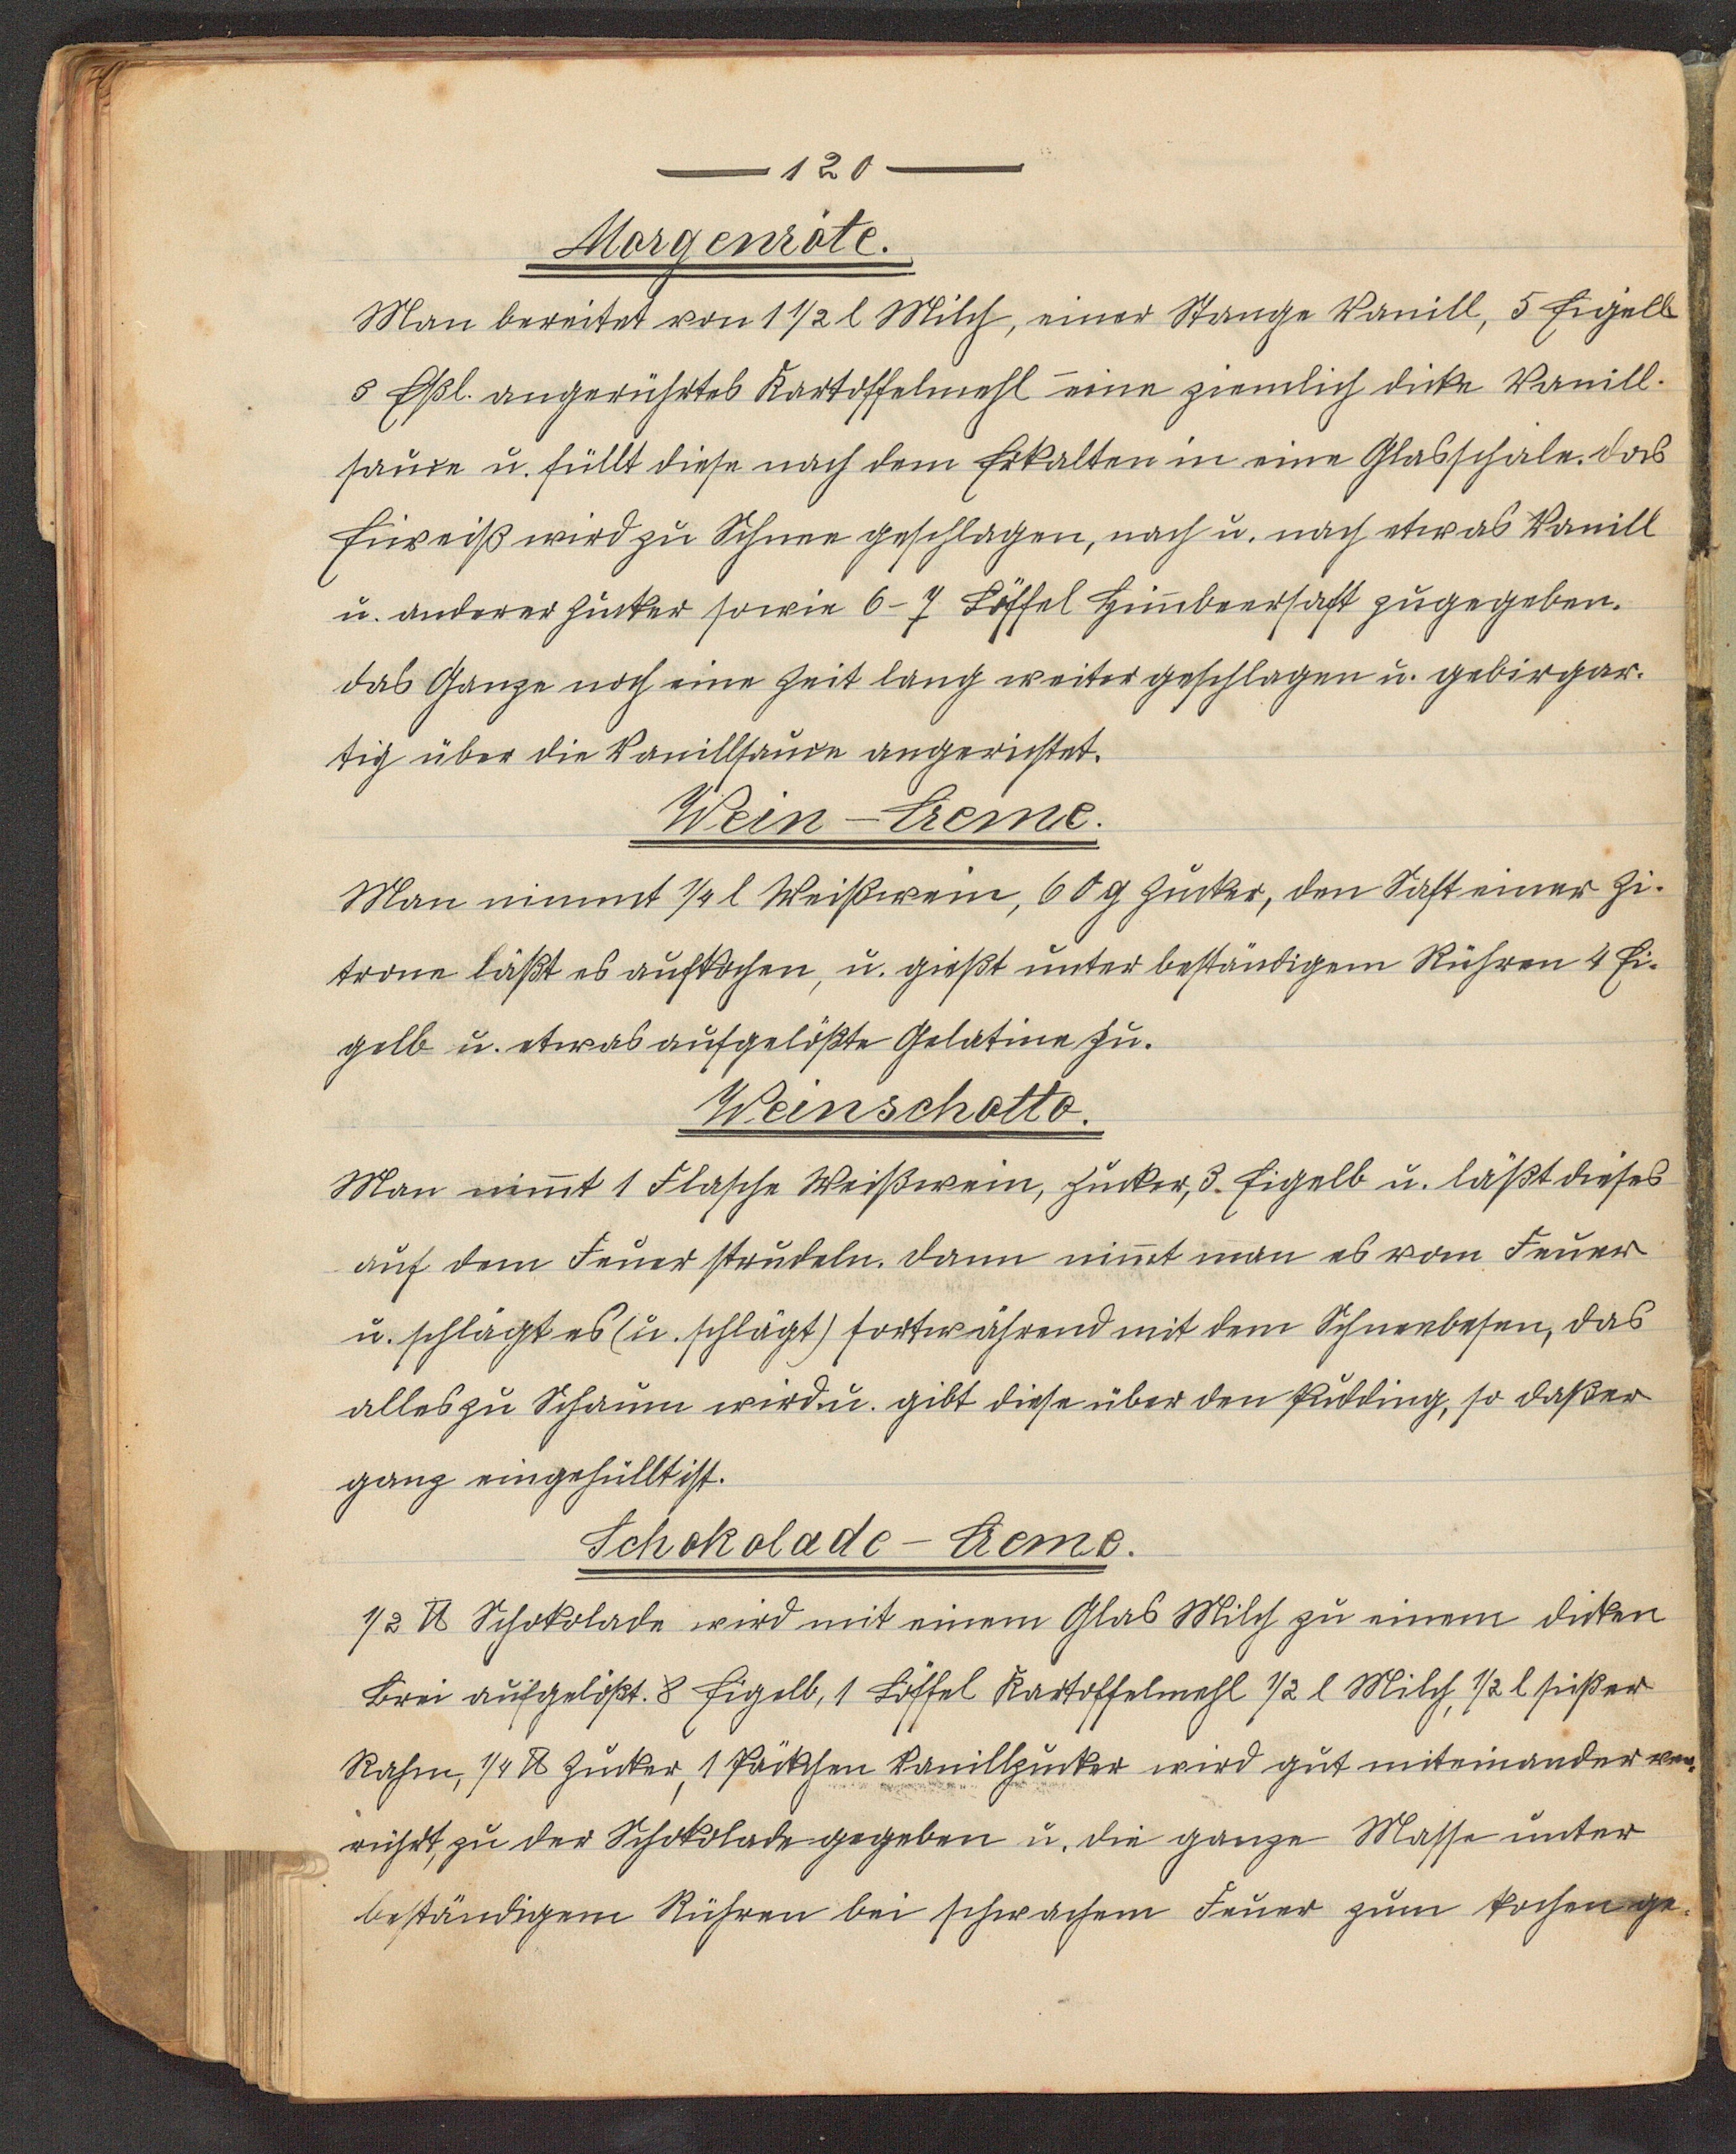 — 120 —
Morgenröte.
Man bereitet von 1 1/2 l Milch, einer Stange Vanill, 5 Eigelb
5 Eßl. angerührtes Kartoffelmehl eine ziemlich dicke Vanill-
sauce u. füllt diese nach dem Erkalten in eine Glasschale. das
Eiweiß wird zu Schnee geschlagen, nach u. nach etwas Vanill
u. anderer Zucker sowie 6-7 Löffel Him̄beersaft zugegeben.
das Ganze noch eine Zeit lang weiter geschlagen u. gebirgar-
tig über die Vanillsauce angerichtet.
Wein - Creme.
Man nimmt 1/4 l Weißwein, 60 g Zucker, den Saft einer Zi-
trone läßt es aufkochen, u. gießt unter beständigem Rühren 4 Ei-
gelb u. etwas aufgelößte Gelatine zu.
Weinschotto.
Man nim̄t 1 Flasche Weißwein, Zucker, 3. Eigelb u. läßt dieses
auf dem Feuer strudeln. dann nim̄t man es vom Feuer
u. schlägt es (u. schlägt) fortwährend mit dem Schneebesen, das
alles zu Schaum wird u. gibt diese über den Pudding, so daß er
ganz eingehüllt ist.
Schokolade - Creme.
1/2 ℔ Schokolade wird mit einem Glas Milch zu einem dicken
Brei aufgelößt. 8 Eigelb, 1 Löffel Kartoffelmehl 1/2 l Milch, 1/2 l süßer
Rahm, 1/4 ℔ Zucker, 1 Päckchen Vanillzucker wird gut miteinander ver-
rührt, zu der Schokolade gegeben u. die ganze Masse unter
beständigem Rühren bei schwachem Feuer zum kochen ge-